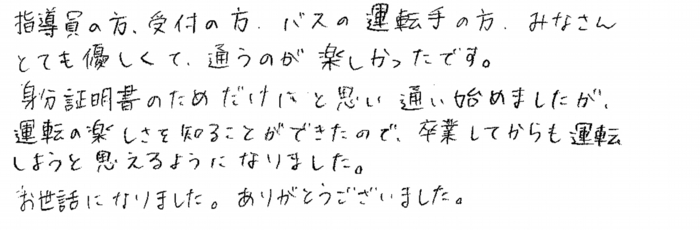 指導員の方、受付の方、バスの運転手の方、みなさん
とても優しくて、通うのが楽しかったです。
身分証明書のためだけにと思い通い始めましたが、
運転の楽しさを知ることができたので、卒業してからも運転
しようと思えるようになりました。
お世話になりました。ありがとうございました。